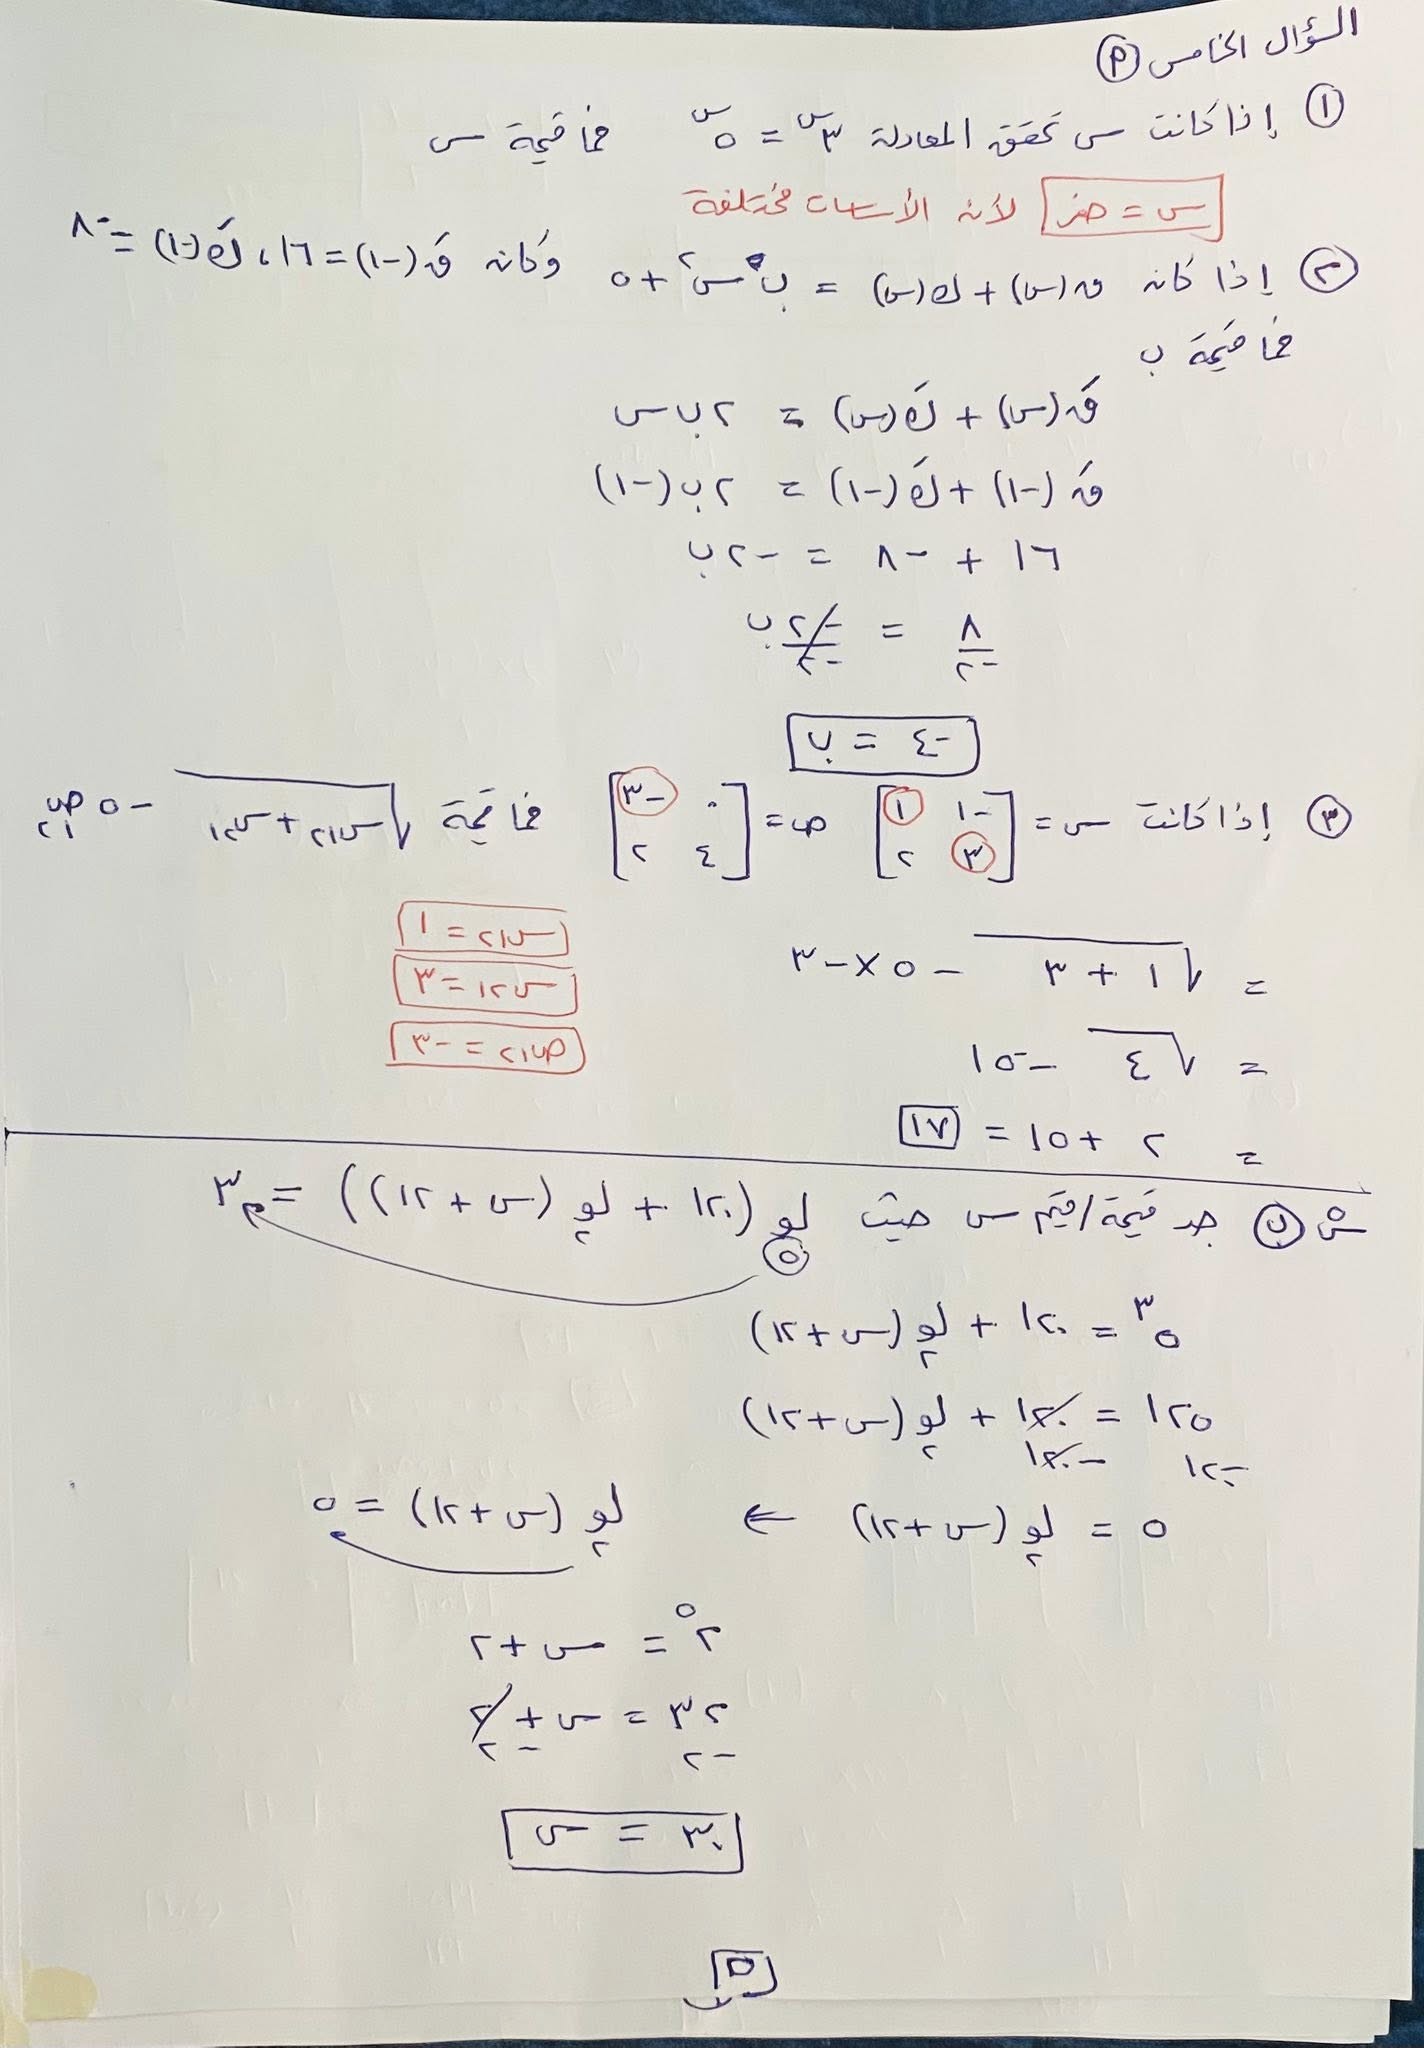 السؤال الخامس (أ)
(١) إذا كانت س تحقق المعادلة ٣^س = ٥^س فما قيمة س
س = صفر لأن الأساسات مختلفة
(٢) إذا كان ق(س) + ك(س) = ب س^٢ + ٥ وكان قَ(-١) = ١٦ ، كَ(-١) = -٨
فما قيمة ب
قَ(س) + كَ(س) = ٢ب س
قَ(-١) + كَ(-١) = ٢ب(-١)
١٦ + -٨ = -٢ب
٨/-٢ = -٢ب/-٢
-٤ = ب
(٣) إذا كانت س = [-١ ١ ; ٣ ٢] ص = [٠ -٣ ; ٤ ٢] فما قيمة √(س١٢ + س٢١) - ٥ص١٢
س١٢ = ١
س٢١ = ٣
ص١٢ = -٣
= √(١ + ٣) - ٥×-٣
= √٤ - -١٥
= ٢ + ١٥ = ١٧
س (ب) جد قيمة/قيم س حيث لو٥(١٢٠ + لو٢(س + ٢)) = ٣
٥^٣ = ١٢٠ + لو٢(س + ٢)
١٢٥ = ١٢٠ + لو٢(س + ٢)
-١٢٠ -١٢٠
٥ = لو٢(س + ٢) ← لو٢(س + ٢) = ٥
٢^٥ = س + ٢
٣٢ = س + ٢
-٢ -٢
٣٠ = س
٥